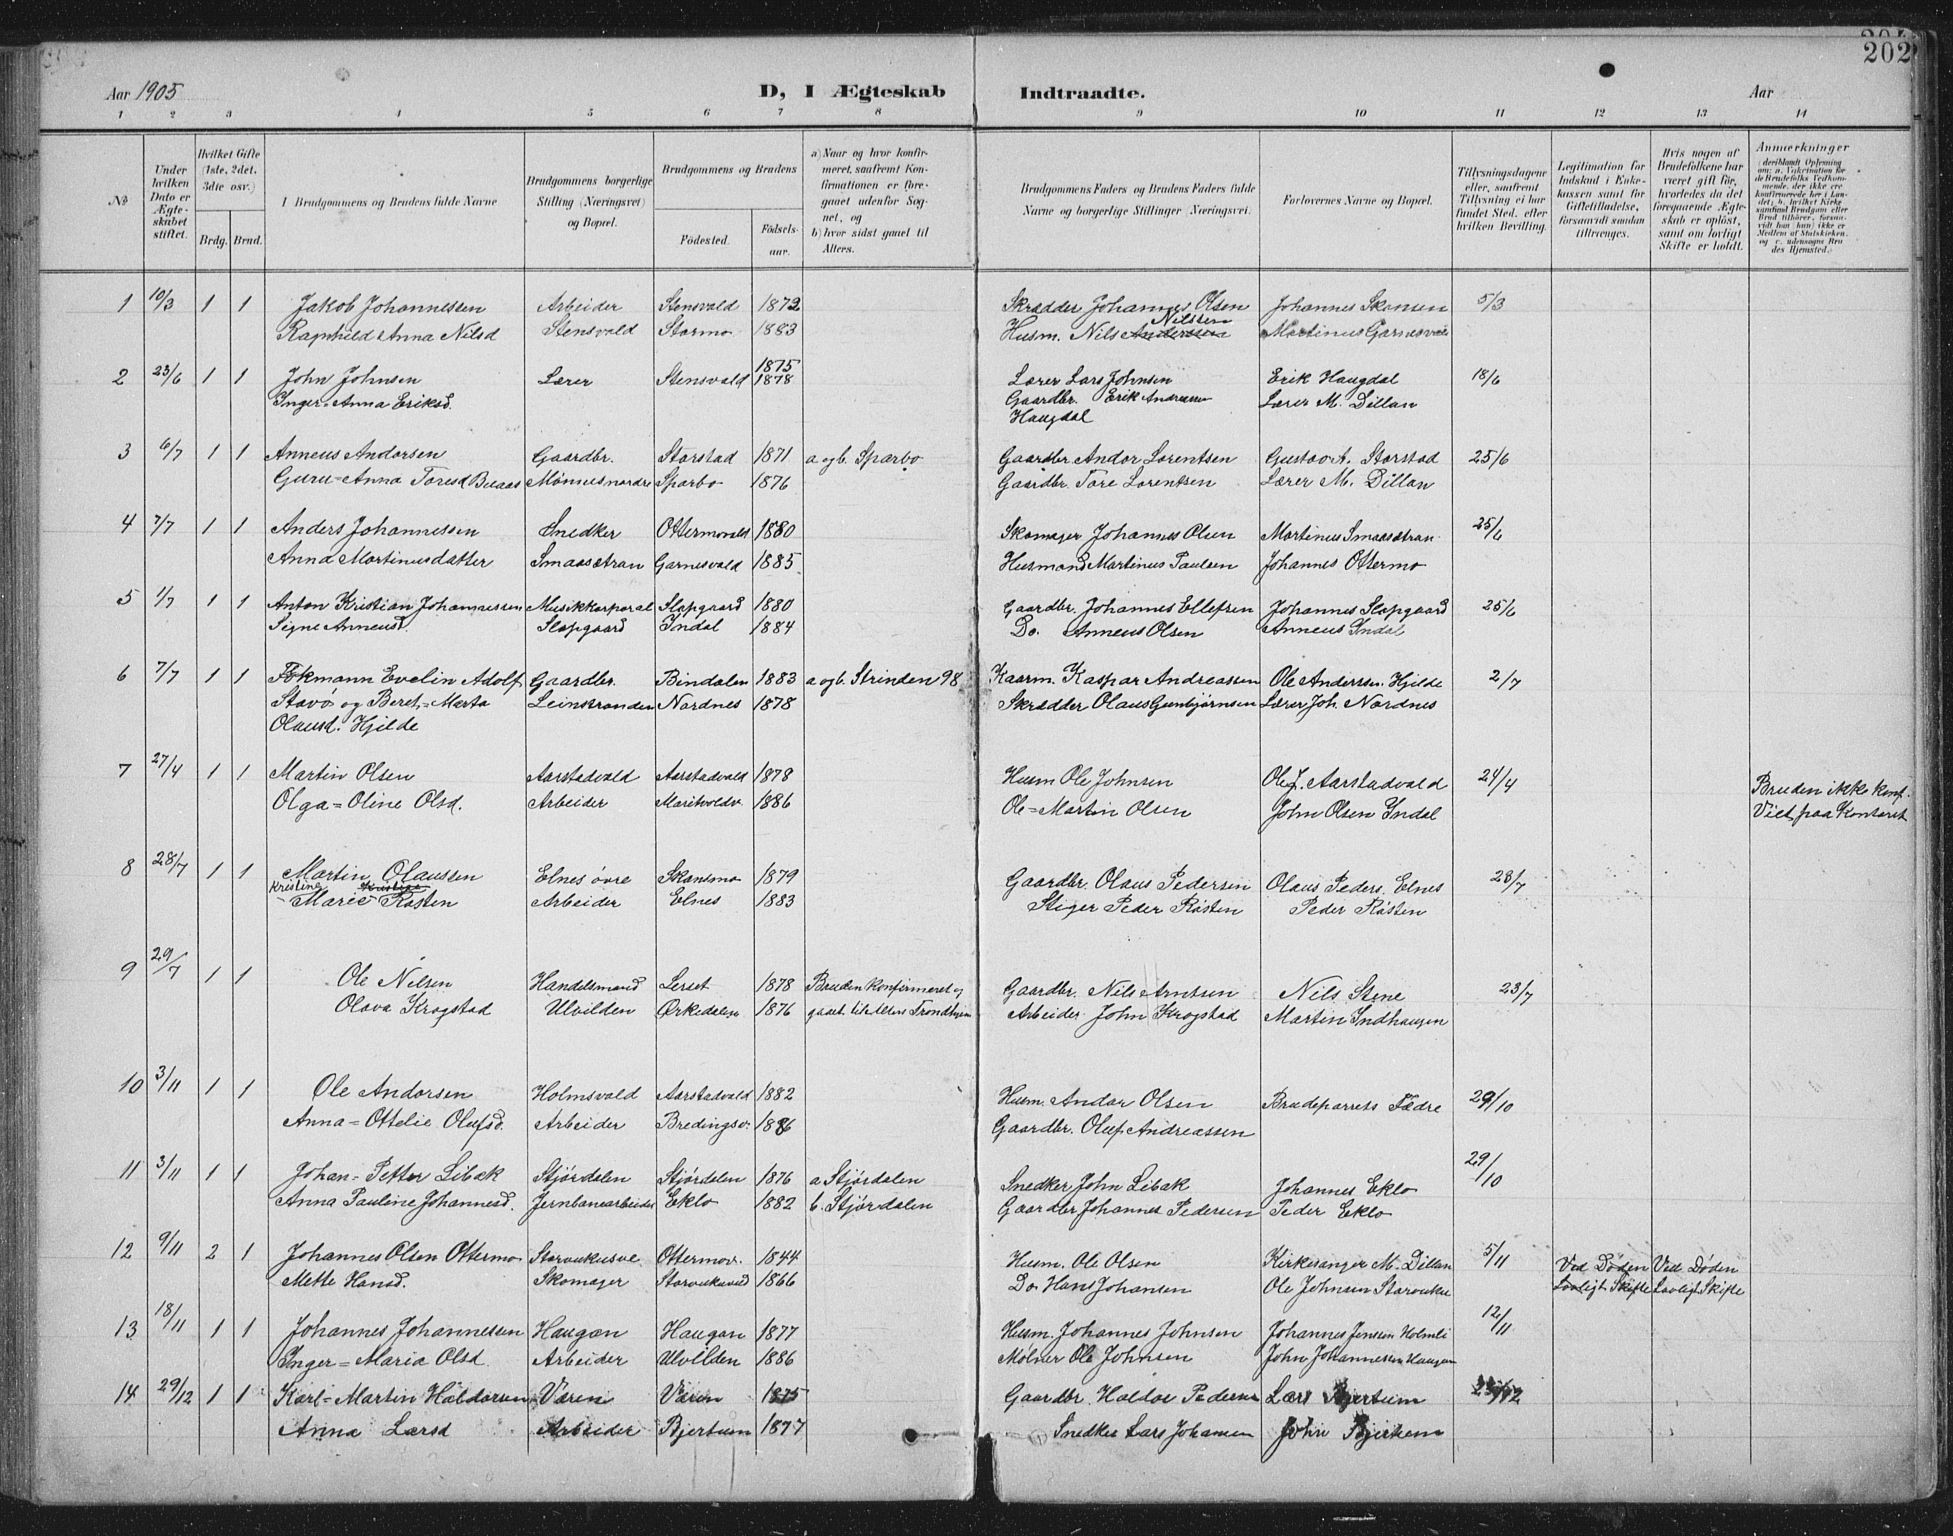 202
Aar 1905
D, I Ægteskab Indtraadte.
Aar
1 2 3 4 5 6 7 8 9 10 11 12 13 14
No
Under hvilken Dato er Ægteskabet stiftet.
Hvilket Gifte (1ste, 2det, 3die osv.)
Brdg. Brud.
I Brudgommens og Brudens fulde Navne
Brudgommens borgerlige Stilling (Næringsvei) og Bopæl.
Brudgommens og Brudens
Fødested.
Fødselsaar.
a) Naar og hvor konfirmeret, saafremt Konfirmationen er foregaaet udenfor Sognet, og
b) hvor sidst gaaet til Alters.
Brudgommens Faders og Brudens Faders fulde Navne og borgerlige Stillinger (Næringsvei.
Forlovernes Navne og Bopæl.
Tillysningsdagene eller, saafremt Tillysning ei har fundet Sted, efter hvilken Bevilling.
Legitimation for Indskud i Enkekassen samt for Giftetilladelse, forsaavidt saadan tiltrænges.
Hvis nogen af Brudefolkene har været gift før, hvorledes da det foregaaende Ægteskab er opløst, samt om lovligt Skifte er holdt.
Anmærkninger
1 10/3 1 1 Jakob Johannessen Arbeider Stensvald 1872 Skrædder Johannes Olsen Johannes Skansen 5/3
Ragnhild Anna Nilsd Stensvald Stormo 1883 Husm. Nils Anderssen Nilssen Martinus Garnesvei
2 23/6 1 1 John Johnsen Lærer Stensvald 1875 1878 Lærer Lars Johnsen Erik Haugdal 18/6
Inger-Anna Eriksd. Gaardbr. Erik Andreassen Lærer M. Dillan
Haugdal
3 6/7 1 1 Anneus Andorsen Gaardbr. Storstad 1871 a og b. Sparbo Gaardbr Andor Lorentsen Gustav A. Storstad 25/6
Guru=Anna Toresd Buaas Mønnesnordre Sparbo 1876 Gaardbr. Tore Lorentsen Lærer M. Dillan
4 7/7 1 1 Anders Johannessen Snedker Ottermovald 1880 Skomager Johannes Olsen Martinus Smaasætran 25/6
Anna Martinusdatter Smaasætran Garnesvald 1885 Husmand Martinus Paulsen Johannes Ottermo
5 1/7 1 1 Anton Kristian Johannessen Musikkorporal Slapgaard 1880 Gaardbr. Johannes Ellefsen Johannes Slapgaard 25/6
Signe Anneusd. Slapgaard Indal 1884 Do. Anneus Olsen Anneus Indal
6 7/7 1 1 Fokmann Evelin Adolf Gaardbr. Bindalen 1883 a og b. Strinden 98 Kaarm. Kaspar Andreassen Ole Anderssen Hjelde 2/7
Stavø og Beret=Marta Leinstranden Nordnes 1878 Skrædder Olaus Gunbjørnsen Lærer Joh. Nordnes
Olausd. Hjilde
7 27/4 1 1 Martin Olsen Aarstadvald Aarstadvald 1878 Husm Ole Johnsen Ole J. Aarstadvald 24/4 Bruden ikke konf.
Olga=Oline Olsd. Arbeider Maritvoldv. 1886 Ole=Martin Olsen John Olsen Indal Viet paa Kontoret
8 28/7 1 1 Martin Olaussen Elnes øvre Skansmo 1879 Gaardbr. Olaus Pedersen Olaus Peders. Elnes 23/7
Kristine Kristine
-Marie Røsten Arbeider Elnes 1883 Stiger Peder Røsten Peder Røsten
9 29/7 1 1 Ole Nilsen Handelsmand Leret 1878 Bruden konfirmeret og Gaardbr. Nils Arntsen Nils Stene 23/7
Olava Krogstad Ulvilden Ørkedalen 1876 gaaet til Alters Trondhjem Arbeider John Krogstad Martin Indhaugen
10 3/11 1 1 Ole Andorsen Holmsvald Aarstadvald 1882 Husm. Andor Olsen Brudeparrets Fædre 29/10
Anna=Ottelie Olufsd. Arbeider Bredingsv. 1886 Gaardbr. Oluf Andreassen
11 3/11 1 1 Johan=Petter Libak Stjørdalen Stjørdalen 1876 a Stjørdalen Snedker John Libak Johannes Eklo 29/10
Anna Pauline Johannesd. Jernbanearbeider Eklo 1882 b. Stjørdalen Gaardbr Johannes Pedersen Peder Eklo
12 9/11 2 1 Johannes Olsen Ottermo Starvukusve Ottermov. 1844 Husm. Ole Olsen Kirkesanger M. Dillan 5/11 Ved Døden Ved Døden
Mette Hansd. Skomager Storvukuvld 1866 Do. Hans Johansen Ole Johnsen Storvuku Lovligt Skifte Lovligt Skifte
13 18/11 1 1 Johannes Johannessen Haugan Haugan 1877 Husm. Johannes Johnsen Johannes Jenssen Holmli 12/11
Inger=Maria Olsd. Arbeider Ulvilden 1886 Mølner Ole Johnsen John Johannessen Haugan
14 29/12 1 1 Karl=Martin Haldorsen Væren Væren 1875 Gaardbr. Haldor Pedersen Lars Bjertum
Anna Larsd Arbeider Bjertum 1877 Snedker Lars Johansen John Bjerkem